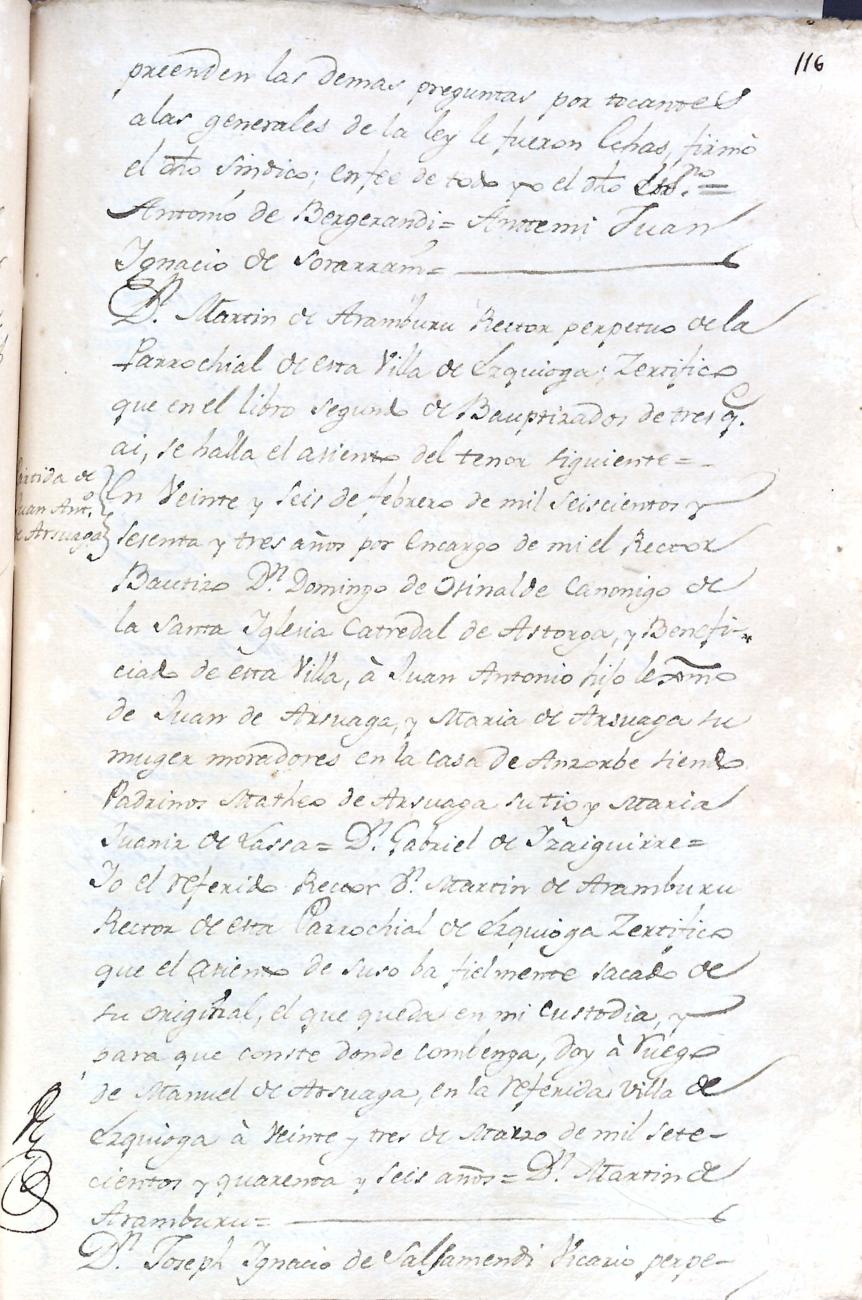 116
preenden las demas preguntas por tocantes
a las generales de la ley le fueron lehas, firmò
el dho sindico; enfee de todo yo el dho
Antonio de Bergerandi = Antemi Juan
Ignacio de Sorarrain =
Dn. Martin de Aramburu Rector perpetuo de la
Parrochial de esta Villa de Ezquioga; Zertifico
que en el libro segundo de Bauptizados de tres q.
ai, se halla el asiento del tenor siguiente =
Partida de
Juan Anto.
de Arsuaga
En Veinte y seis de febrero de mil seiscientos y
sesenta y tres años por encargo de mi el Rector
Bautizo Dn. Domingo de Osinalde Canonigo de
la Santa Iglesia Catredal de Astorga, y Benefi-
ciado de esta Villa, à Juan Antonio hijo lexmo
de Juan de Arsuaga, y Maria de Arsuaga su
muger moradores en la casa de Anzorbe siendo
Padrinos Matheo de Arsuaga su tio y Maria
Juaniz de Lassa = Dn. Gabriel de Yzaiguirre =
Yo el referido Rector Dn. Martin de Aramburu
Rector de esta Parrochial de Ezquioga Zertifico
que el asiento de suso ba fielmente sacado de
su original, el que queda en mi custodia, y
para que conste donde combenga, doy à ruego
de Manuel de Arsuaga, en la referida Villa de
Ezquioga à Veinte y tres de Marzo de mil sete-
cientos y quarenta y seis años = Dn. Martin de
Aramburu =
Dn. Joseph Ignacio de Salsamendi Vicario perpe-